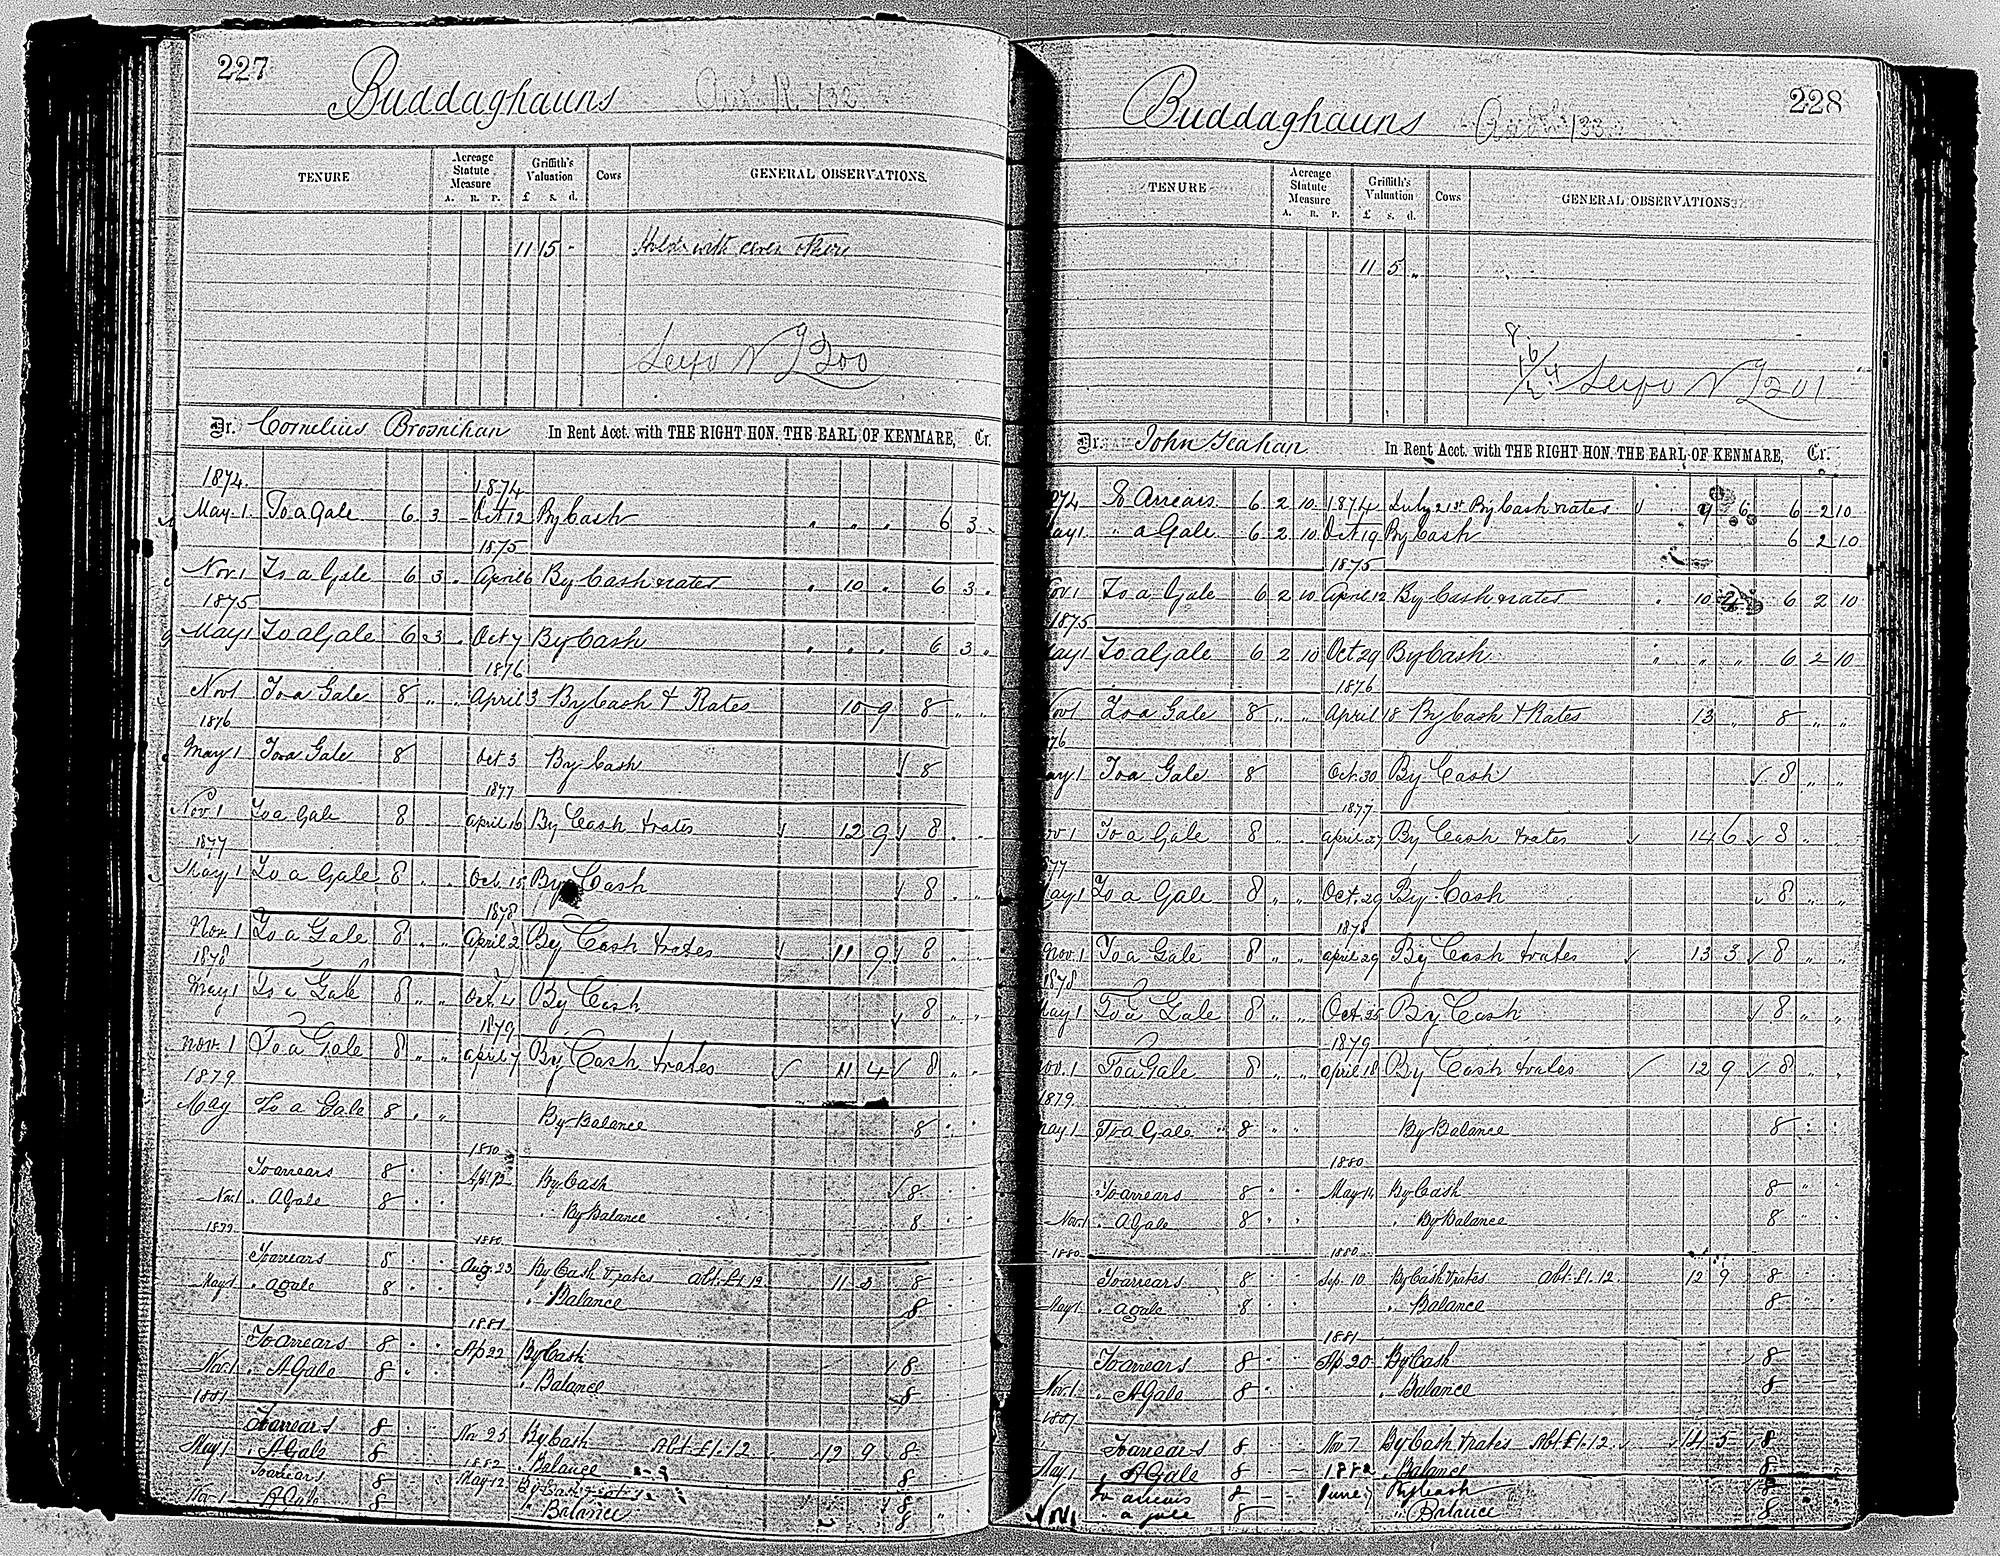 227
Buddaghauns
TENURE Acreage Statute Measure Griffith's Valuation Cows GENERAL OBSERVATIONS.
A. R. P. £ s. d.
11 15 - Holds with others
200
Dr. Cornelius Brosnihan In Rent Acct. with THE RIGHT HON. THE EARL OF KENMARE, Cr.
1874 1874
May 1 To a Gale 6 3 - Oct 12 By Cash " " " 6 3 -
1875
Nov. 1 To a Gale 6 3 " April 6 By Cash & rates " 10 " 6 3 "
1875
May 1 To a Gale 6 3 " Oct 7 By Cash " " " 6 3 "
1876
Nov 1 To a Gale 8 " " April 3 By Cash & Rates 10 9 8 " "
1876
May 1 To a Gale 8 Oct 3 By Cash √ 8
1877
Nov 1 To a Gale 8 April 16 By Cash & rates √ 12 9 √ 8 " "
1877
May 1 To a Gale 8 " " Oct. 15 By Cash √ 8 " "
1878
Nov. 1 To a Gale 8 " " April 2 By Cash & rates √ 11 9 √ 8 " "
1878
May 1 To a Gale 8 " " Oct. 4 By Cash √ 8 " "
1879
Nov. 1 To a Gale 8 " " April 7 By Cash & rates √ 11 4 √ 8 " "
1879
May To a Gale 8 " " By Balance 8 " "
1880
To arrears 8 " " Ap. 12 By Cash √ 8 " "
Nov. 1 " A Gale 8 " " " By Balance 8 " "
1880
To arrears 8 " " Aug. 23 By Cash & rates Abt. £1.12 11 3 8 " "
May 1 " a gale 8 " " " Balance 8 " "
1881
To arrears 8 " " Ap 22 By Cash √ 8 " "
Nov. 1 " A Gale 8 " " " Balance 8
1881
To arrears 8 " Nov 25 By Cash Abt. £1.12 12 9 8
May 1 " A Gale 8 " 1882 " Balance 8
To arrears 8 May 12 8
Nov. 1 A Gale 8 " Balance 8
228
Buddaghauns
TENURE Acreage Statute Measure Griffith's Valuation Cows GENERAL OBSERVATIONS.
A. R. P. £ s. d.
11 5 "
201
Dr. John Geahan In Rent Acct. with THE RIGHT HON. THE EARL OF KENMARE, Cr.
To Arrears 6 2 10 1874 July 21st By Cash & rates √ 9 6 6 2 10
May 1. " a Gale 6 2 10 Oct 19 By Cash 6 2 10
1875
Nov 1 To a Gale 6 2 10 April 12 By Cash & rates " 10 6 2 10
1875
May 1 To a Gale 6 2 10 Oct 29 By Cash " " " 6 2 10
1876
Nov 1 To a Gale 8 " " April 18 By Cash & Rates 13 " 8 " "
76
May 1 To a Gale 8 Oct. 30 By Cash √ 8 " "
1877
Nov 1 To a Gale 8 " " April 27 By Cash & rates √ 14 6 √ 8 " "
1877
May 1 To a Gale 8 " " Oct. 29 By Cash √ 8 " "
1878
Nov. 1 To a Gale 8 " " April 29 By Cash & rates √ 13 3 √ 8 " "
1878
May 1 To a Gale 8 " " Oct. 25 By Cash √ 8 " "
1879
Nov. 1 To a Gale 8 " " April 18 By Cash & rates √ 12 9 √ 8 " "
1879.
May 1 To a Gale 8 " " By Balance 8 " "
1880
To arrears 8 " " May 14 By Cash 8 " "
Nov. 1 " A Gale 8 " " " By Balance 8 " "
1880 1880
To arrears 8 " " Sep. 10 By Cash & rates Abt. £1.12. 12 9 8 " "
May 1 " a gale 8 " " " Balance 8 " "
1881
To arrears 8 " " Ap 20 By Cash √ 8 " "
Nov. 1 " A Gale 8 " " " Balance 8 " "
1881
To arrears 8 " - Nov 7 By Cash & rates Abt £1.12. √ 14 5 √ 8
May 1 " A Gale 8 - 1882 " Balance 8
To arrears 8 - - June 7 By Cash 8
Nov. 1 " a gale 8 " Balance 8